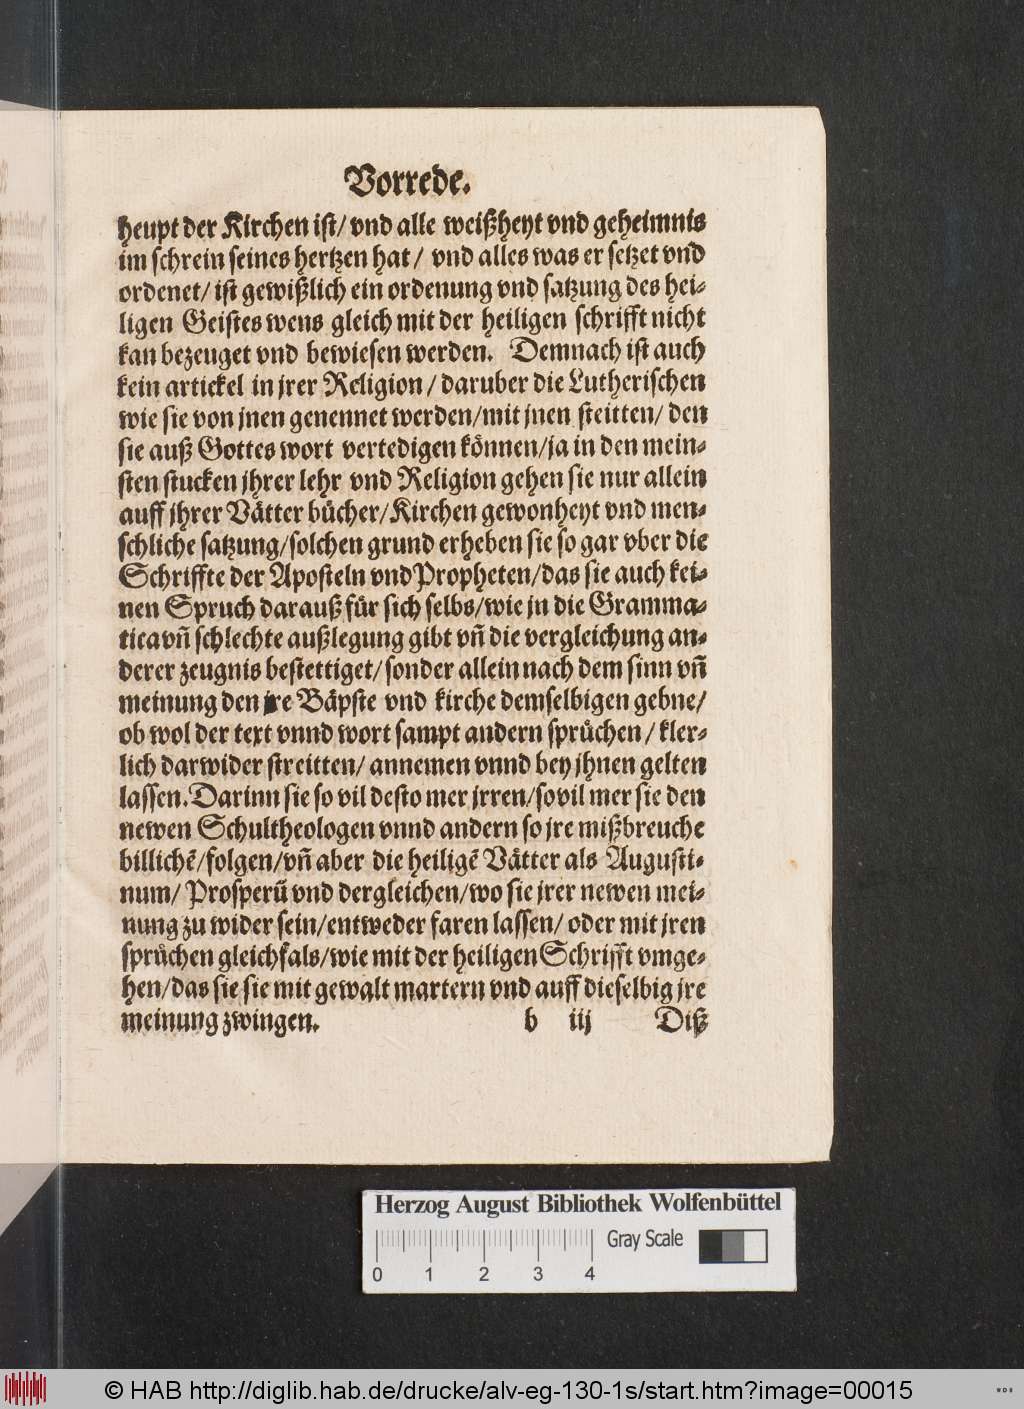 Vorrede.
heupt der Kirchen ist/ vnd alle weißheyt vnd geheimnis
im schrein seines hertzen hat/ vnd alles was er setzet vnd
ordenet/ ist gewißlich ein ordenung vnd satzung des hei⸗
ligen Geistes wens gleich mit der heiligen schrifft nicht
kan bezeuget vnd bewiesen werden. Demnach ist auch
kein artickel in jrer Religion/ daruber die Lutherischen
wie sie von jnen genennet werden/ mit jnen steitten/ den
sie auß Gottes wort vertedigen können/ ja in den mein⸗
sten stucken jhrer lehr vnd Religion gehen sie nur allein
auff jhrer Vätter bücher/ Kirchen gewonheyt vnd men⸗
schliche satzung/ solchen grund erheben sie so gar vber die
Schriffte der Aposteln vnd Propheten/ das sie auch kei⸗
nen Spruch darauß für sich selbs/ wie jn die Gramma⸗
tica vñ schlechte außlegung gibt vñ die vergleichung an⸗
derer zeugnis bestettiget/ sonder allein nach dem sinn vñ
meinung den jre Bäpste vnd kirche demselbigen gebne/
ob wol der text vnnd wort sampt andern sprüchen/ kler⸗
lich darwider streitten/ annemen vnnd bey jhnen gelten
lassen. Darinn sie so vil desto mer jrren/ so vil mer sie den
newen Schultheologen vnnd andern so jre mißbreuche
billichē/ folgen/ vñ aber die heiligē Vätter als Augusti⸗
num/ Prosperū vnd dergleichen/ wo sie jrer newen mei⸗
nung zu wider sein/ entweder faren lassen/ oder mit jren
sprüchen gleichfals/ wie mit der heiligen Schrifft vmge⸗
hen/ das sie sie mit gewalt martern vnd auff dieselbig jre
meinung zwingen. b iij Diß
Herzog August Bibliothek Wolfenbüttel
Gray Scale
0 1 2 3 4
© HAB http://diglib.hab.de/drucke/alv-eg-130-1s/start.htm?image=00015